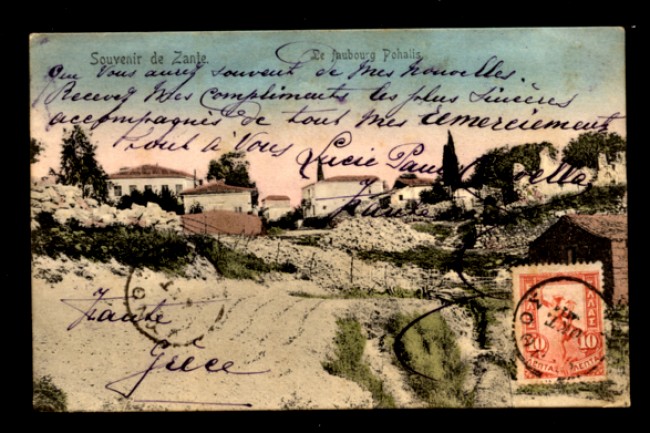 Souvenir de Zante. Le faubourg Pohalis
Que Vous aurez souvent de Mes Nouvelles.
Recevez Mes Compliments les plus sincères
accompagnés de tout Mes remerciements
tout à Vous Lucie
Zante
Grèce
ΕΛΛΑΣ
10 10
ΛΕΠΤΑ ΛΕΠΤΑ